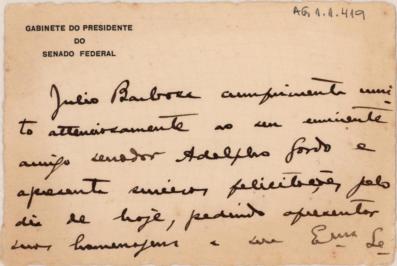 GABINETE DO PRESIDENTE
DO
SENADO FEDERAL
AG.1.1.419
Julio Barbosa cumprimenta mui-
to attenciosamente ao seu eminente
amigo senador Adolpho Gordo e
apresenta sinceras felicitações pelo
dia de hoje, pedindo apresentar
suas homenagens a sua Exma